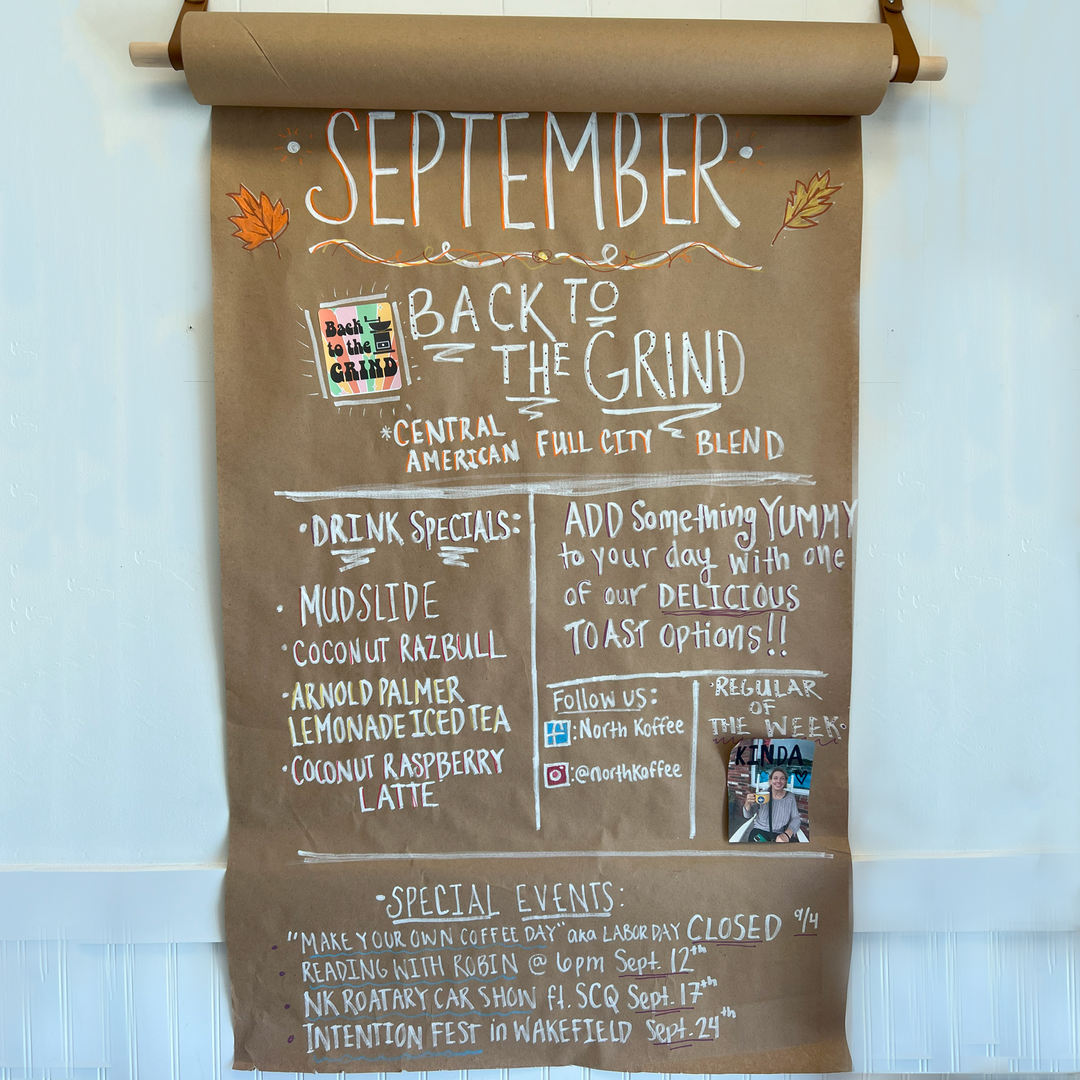 SEPTEMBER
Back
to the
GRIND
BACK TO
THE GRIND
*CENTRAL
AMERICAN FULL CITY BLEND
•DRINK SPECIALS:
• MUDSLIDE
• COCONUT RAZBULL
•ARNOLD PALMER
LEMONADE ICED TEA
•COCONUT RASPBERRY
LATTE
ADD Something YUMMY
to your day with one
of our DELICIOUS
TOAST Options!!
Follow us:
f: North Koffee
: @northkoffee
•REGULAR
OF
THE WEEK•
KINDA
•SPECIAL EVENTS:
• "MAKE YOUR OWN COFFEE DAY" aka LABOR DAY CLOSED 9/4
• READING WITH ROBIN @ 6pm Sept. 12th
• NK ROATARY CAR SHOW ft. SCQ Sept. 17th
• INTENTION FEST in WAKEFIELD Sept. 24th